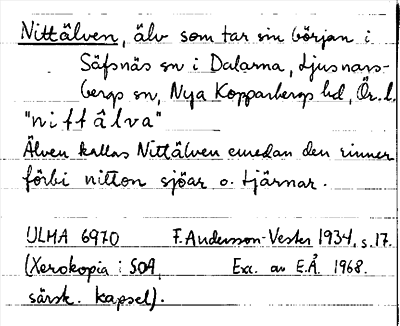 Nittälven, älv som tar sin början i
Säfsnäs sn i Dalarna, Ljusnars-
bergs sn, Nya Kopparbergs bd, Ör. l.
"nittälva"
Älven kallas Nittälven emedan den rinner
förbi nitton sjöar o. tjärnar.
ULMA 6970 F. Andersson-Vester 1934, s. 17.
(Xerokopia i SOA, Exc. av E.Å. 1968.
särsk. kapsel).